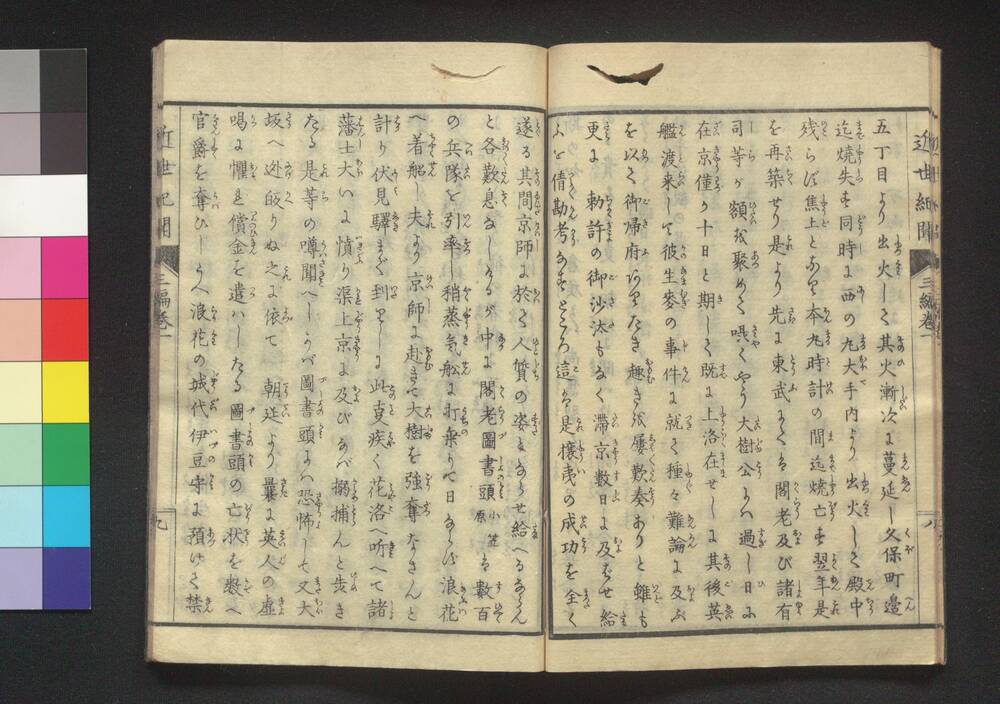 近世紀聞 三編卷一 八
五丁目より出火しく其火漸次に蔓延し久保町邊
迄焼失す同時に西の丸大手内より出火しく殿中
残らず焦土と成り本丸時計の間迄焼亡す翌年是
を再築せり是より先に東武にくは閣老及び諸有
司等が額を聚めく呟くやう大樹公には過し日に
在京僅か十日と期しく既に上洛在せしに其後英
艦渡来して彼生麥の事件に就き種々難論に及ぶ
を以く御帰府ありたき趣きを屡歎奏ありと雖も
更に 勅許の御沙汰もなく滞京數日に及ばせ給
ふを倩勘考なすところ這は是攘夷の成功を全く
遂る其間京師に於く人質の姿になら世給へるならん
と各歎息なしけるが中に閣老圖書頭小笠原は數百
の兵隊を引率し稍蒸気舩に打乗りて日ならず浪花
へ着船し夫より京師に赴きて大樹を強奪なさんと
計り伏見驛まで到りしに此叓疾く花洛へ聞へて諸
藩士大いに憤り渠上京に及びなば搦捕んと歩き
たる是等の噂聞へしかば圖書頭には恐怖して又大
坂へ迯皈りぬ之に依て 朝廷より曩に英人の虚
喝に懼を償金を遣はしたる圖書頭の亡状を數へ
官爵を奪ひしうへ浪花の城代伊豆守に預けさ禁
近世紀聞 三編卷一 九